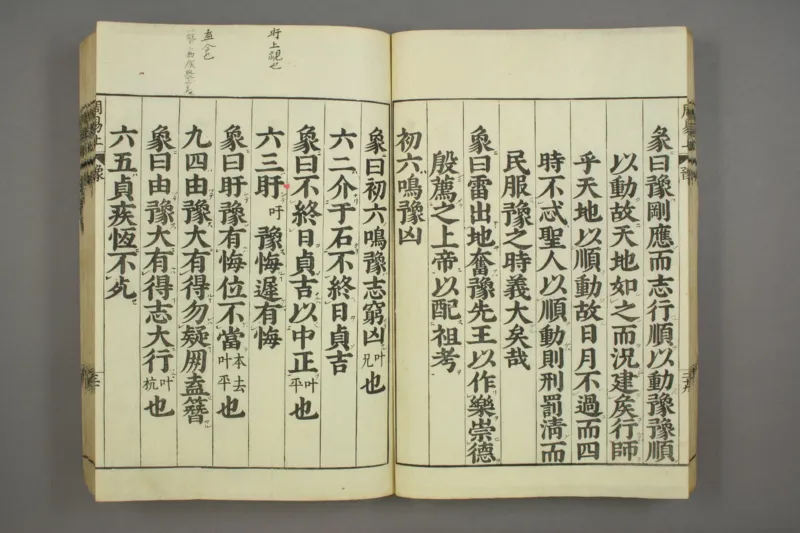 彖曰豫剛應而志行順以動豫豫順
以動故天地如之而況建矦行師
乎天地以順動故日月不過而四
時不忒聖人以順動則刑罰淸而
民服豫之時義大矣哉
象曰雷出地奮豫先王以作樂崇德
殷薦之上帝以配祖考
初六鳴豫凶
象曰初六鳴豫志窮凶叶兄也
六二介于石不終日貞吉
象曰不終日貞吉以中正叶平也
六三盱吁豫悔遲有悔
象曰盱豫有悔位不當本去叶平也
九四由豫大有得勿疑朋盍簪
象曰由豫大有得志大行叶杭也
六五貞疾恆不死
盱上視也
周易上
豫
周易上
豫